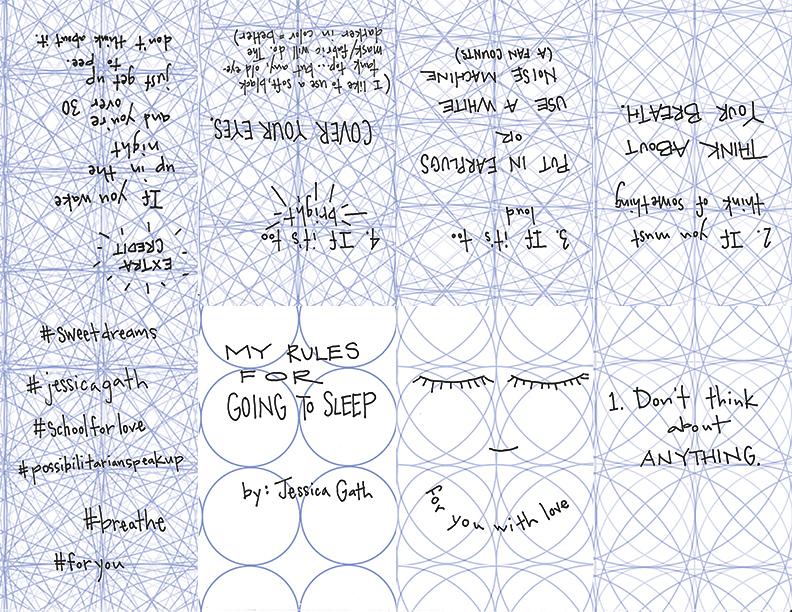 MY RULES
FOR
GOING TO SLEEP
by: Jessica Gath
for you with love
1. Don't think
about
ANYTHING.
2. If you must
think of something
THINK ABOUT
YOUR BREATH.
3. If it's too
loud
PUT IN EARPLUGS
OR
USE A WHITE
NOISE MACHINE
(A FAN COUNTS)
4. If it's too
bright
COVER YOUR EYES.
(I like to use a soft, black
tank top... but any old eye-
mask/fabric will do. The
darker in color = better)
EXTRA
CREDIT
If you wake
up in the
night
and you're
over 30
just get up
to pee.
don't think about it.
#sweetdreams
#jessicagath
#schoolforlove
#possibilitarianspeakup
#breathe
#foryou